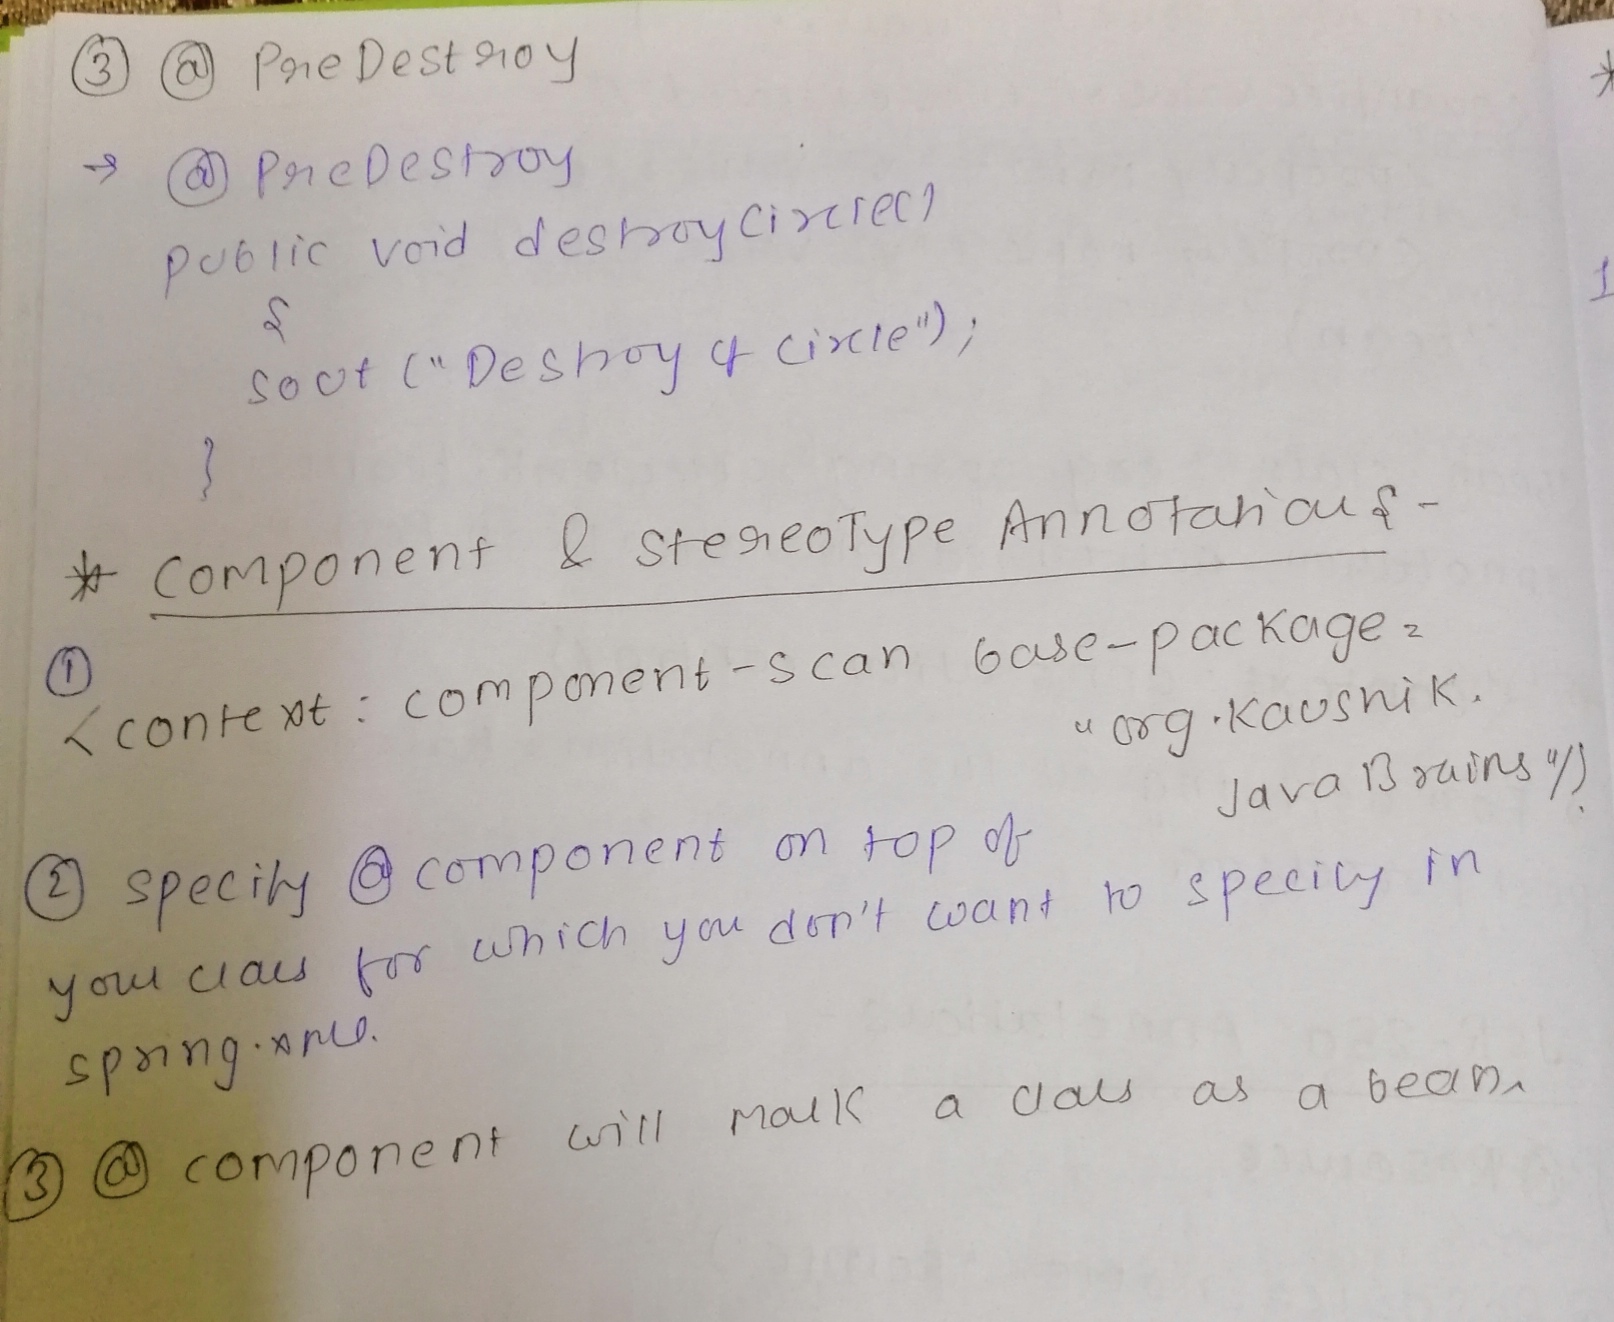 ③ @ PreDestroy
→ @ PreDestroy
public void destroyCircle()
{
sout ("Destroy of circle");
}
* Component & StereoType Annotations -
①
<context : component-scan base-package =
"org.kaushik.
JavaBrains"/>
② specify @ component on top of
your class for which you don't want to specify in
spring.xml.
③ @ component will mark a class as a bean.
*
1